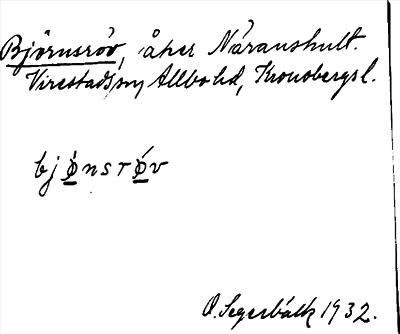 Björnsröv, åker Näraushult.
Virestads sn, Allbo hd, Kronobergs l.
bjø̱nsrǿ̱v
O. Segerbäck 1932.